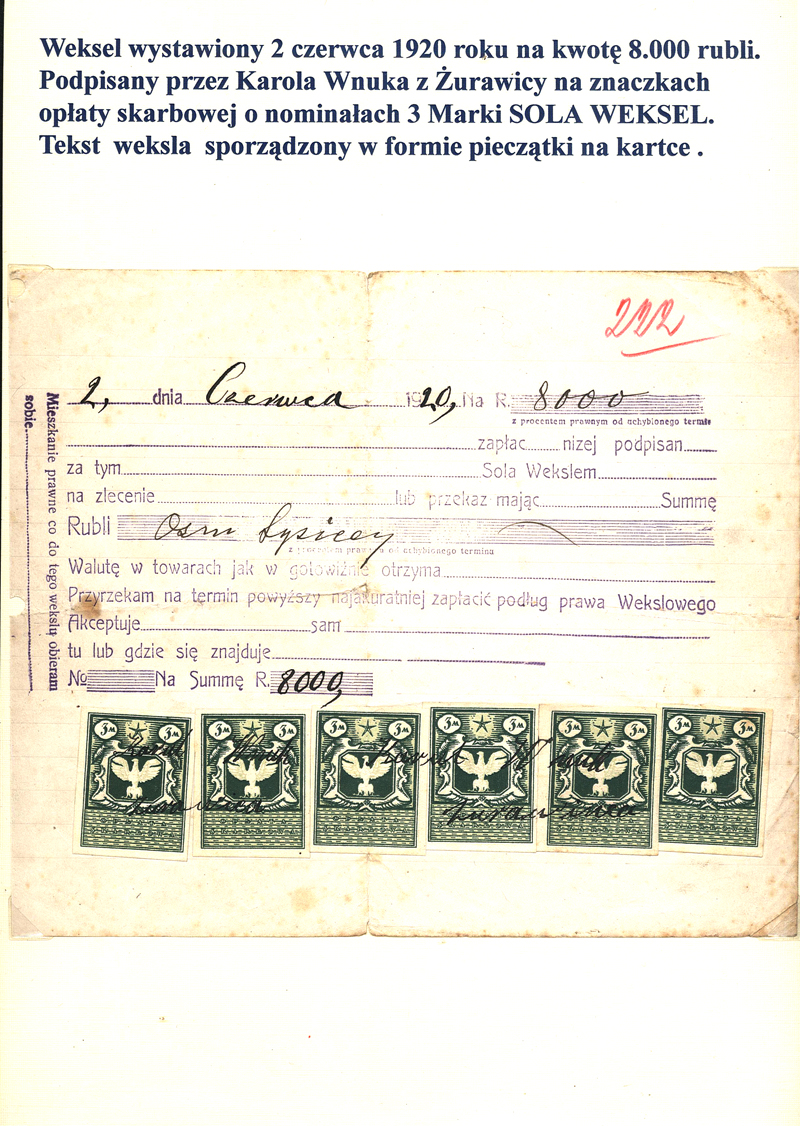 Weksel wystawiony 2 czerwca 1920 roku na kwotę 8.000 rubli.
Podpisany przez Karola Wnuka z Żurawicy na znaczkach
opłaty skarbowej o nominałach 3 Marki SOLA WEKSEL.
Tekst weksla sporządzony w formie pieczątki na kartce .
222
2, dnia Czerwca 1920, Na R. 8000
z procentem prawnym od uchybionego termin
zapłac nizej podpisan
za tym Sola Wekslem
na zlecenie lub przekaz mając Summę
Rubli Osm tysicey
z procentem prawnym od uchybionego termina
Walutę w towarach jak w gotowiźnie otrzyma
Przyrzekam na termin powyższy najakuratniej zapłacić podług prawa Wekslowego
Akceptuje sam
tu lub gdzie się znajduje
No Na Summę R. 8000,
Mieszkanie prawne co do tego wekslu obieram
sobie
3M 3M 3M 3M 3M 3M 3M 3M 3M 3M 3M 3M
Karol Wnuk Karol Wnuk
Żurawica Żurawica